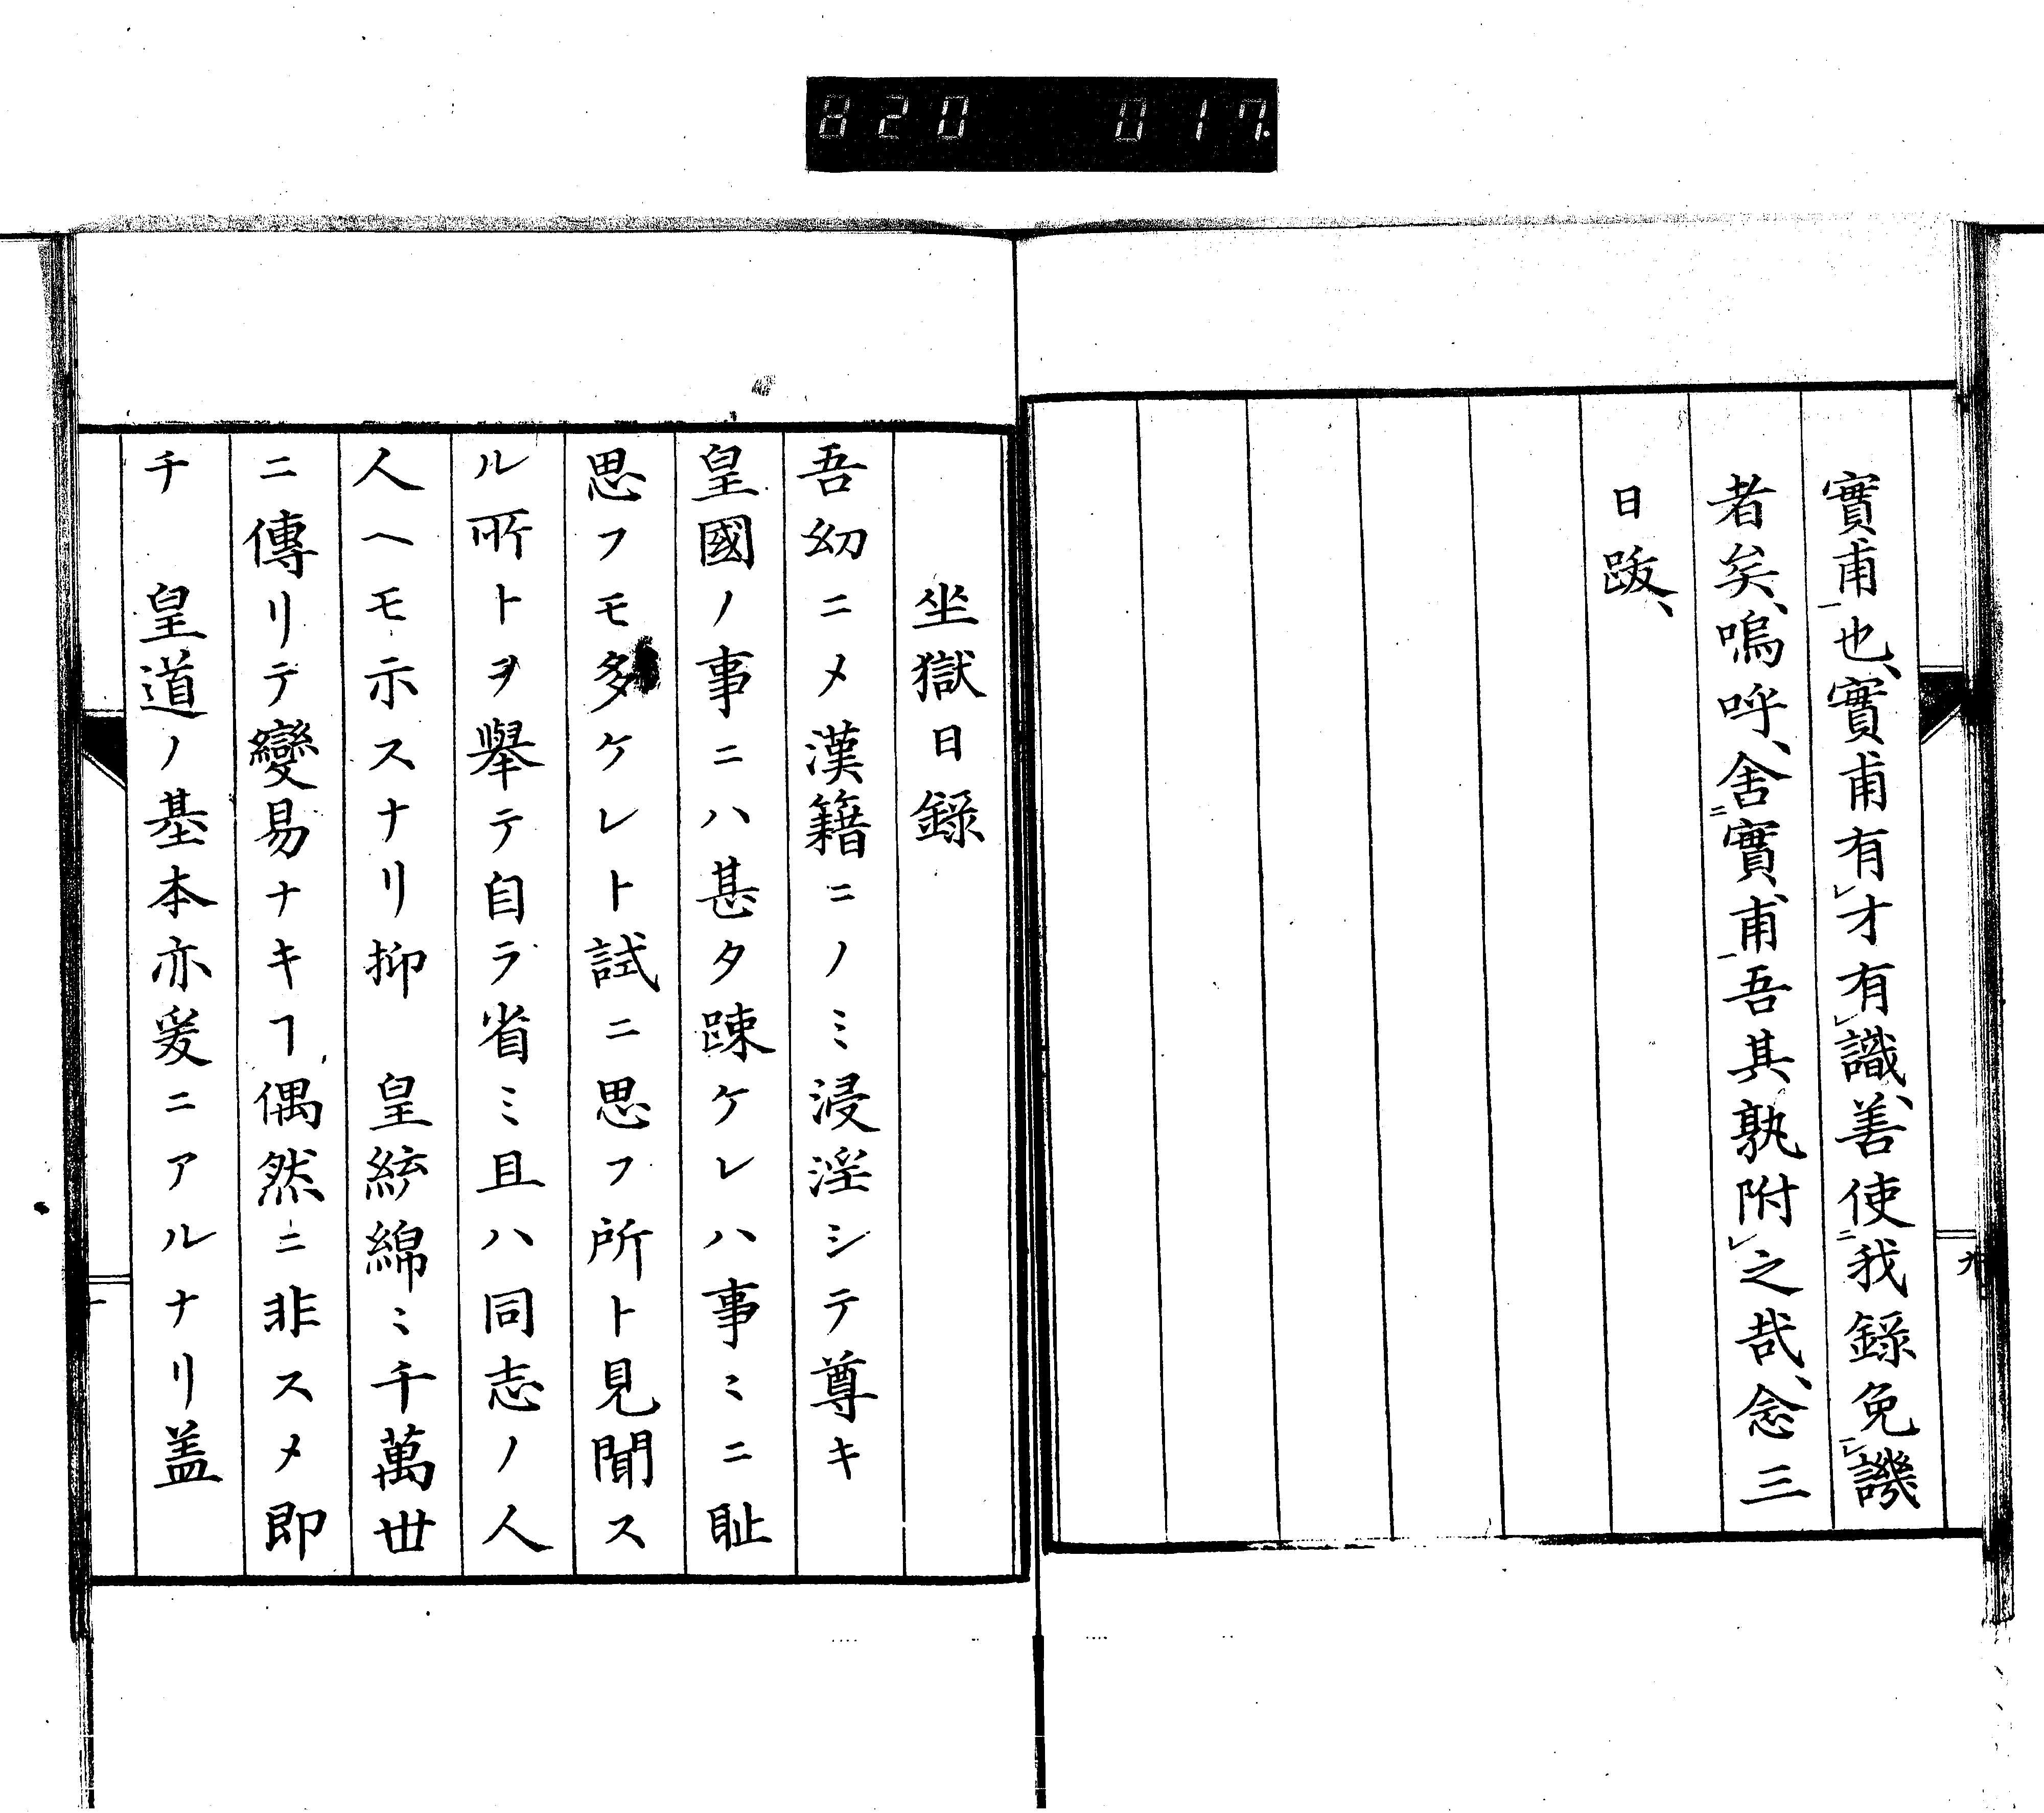 820 017.
實甫一也、實甫有レ才有レ識、善使二我錄免一レ譏
者矣、嗚呼、舍二實甫一吾其孰附レ之哉、念三
日跋、
九
坐獄日錄
吾幼ニメ漢籍ニノミ浸淫シテ尊キ
皇國ノ事ニハ甚タ踈ケレハ事ミニ耻
思フモ多ケレト試ニ思フ所ト見聞ス
ル所トヲ舉テ自ラ省ミ且ハ同志ノ人
人ヘモ示スナリ抑　皇統綿ミ千萬世
ニ傳リテ變易ナキヿ偶然ニ非スメ即
チ　皇道ノ基本亦爰ニアルナリ盖
一